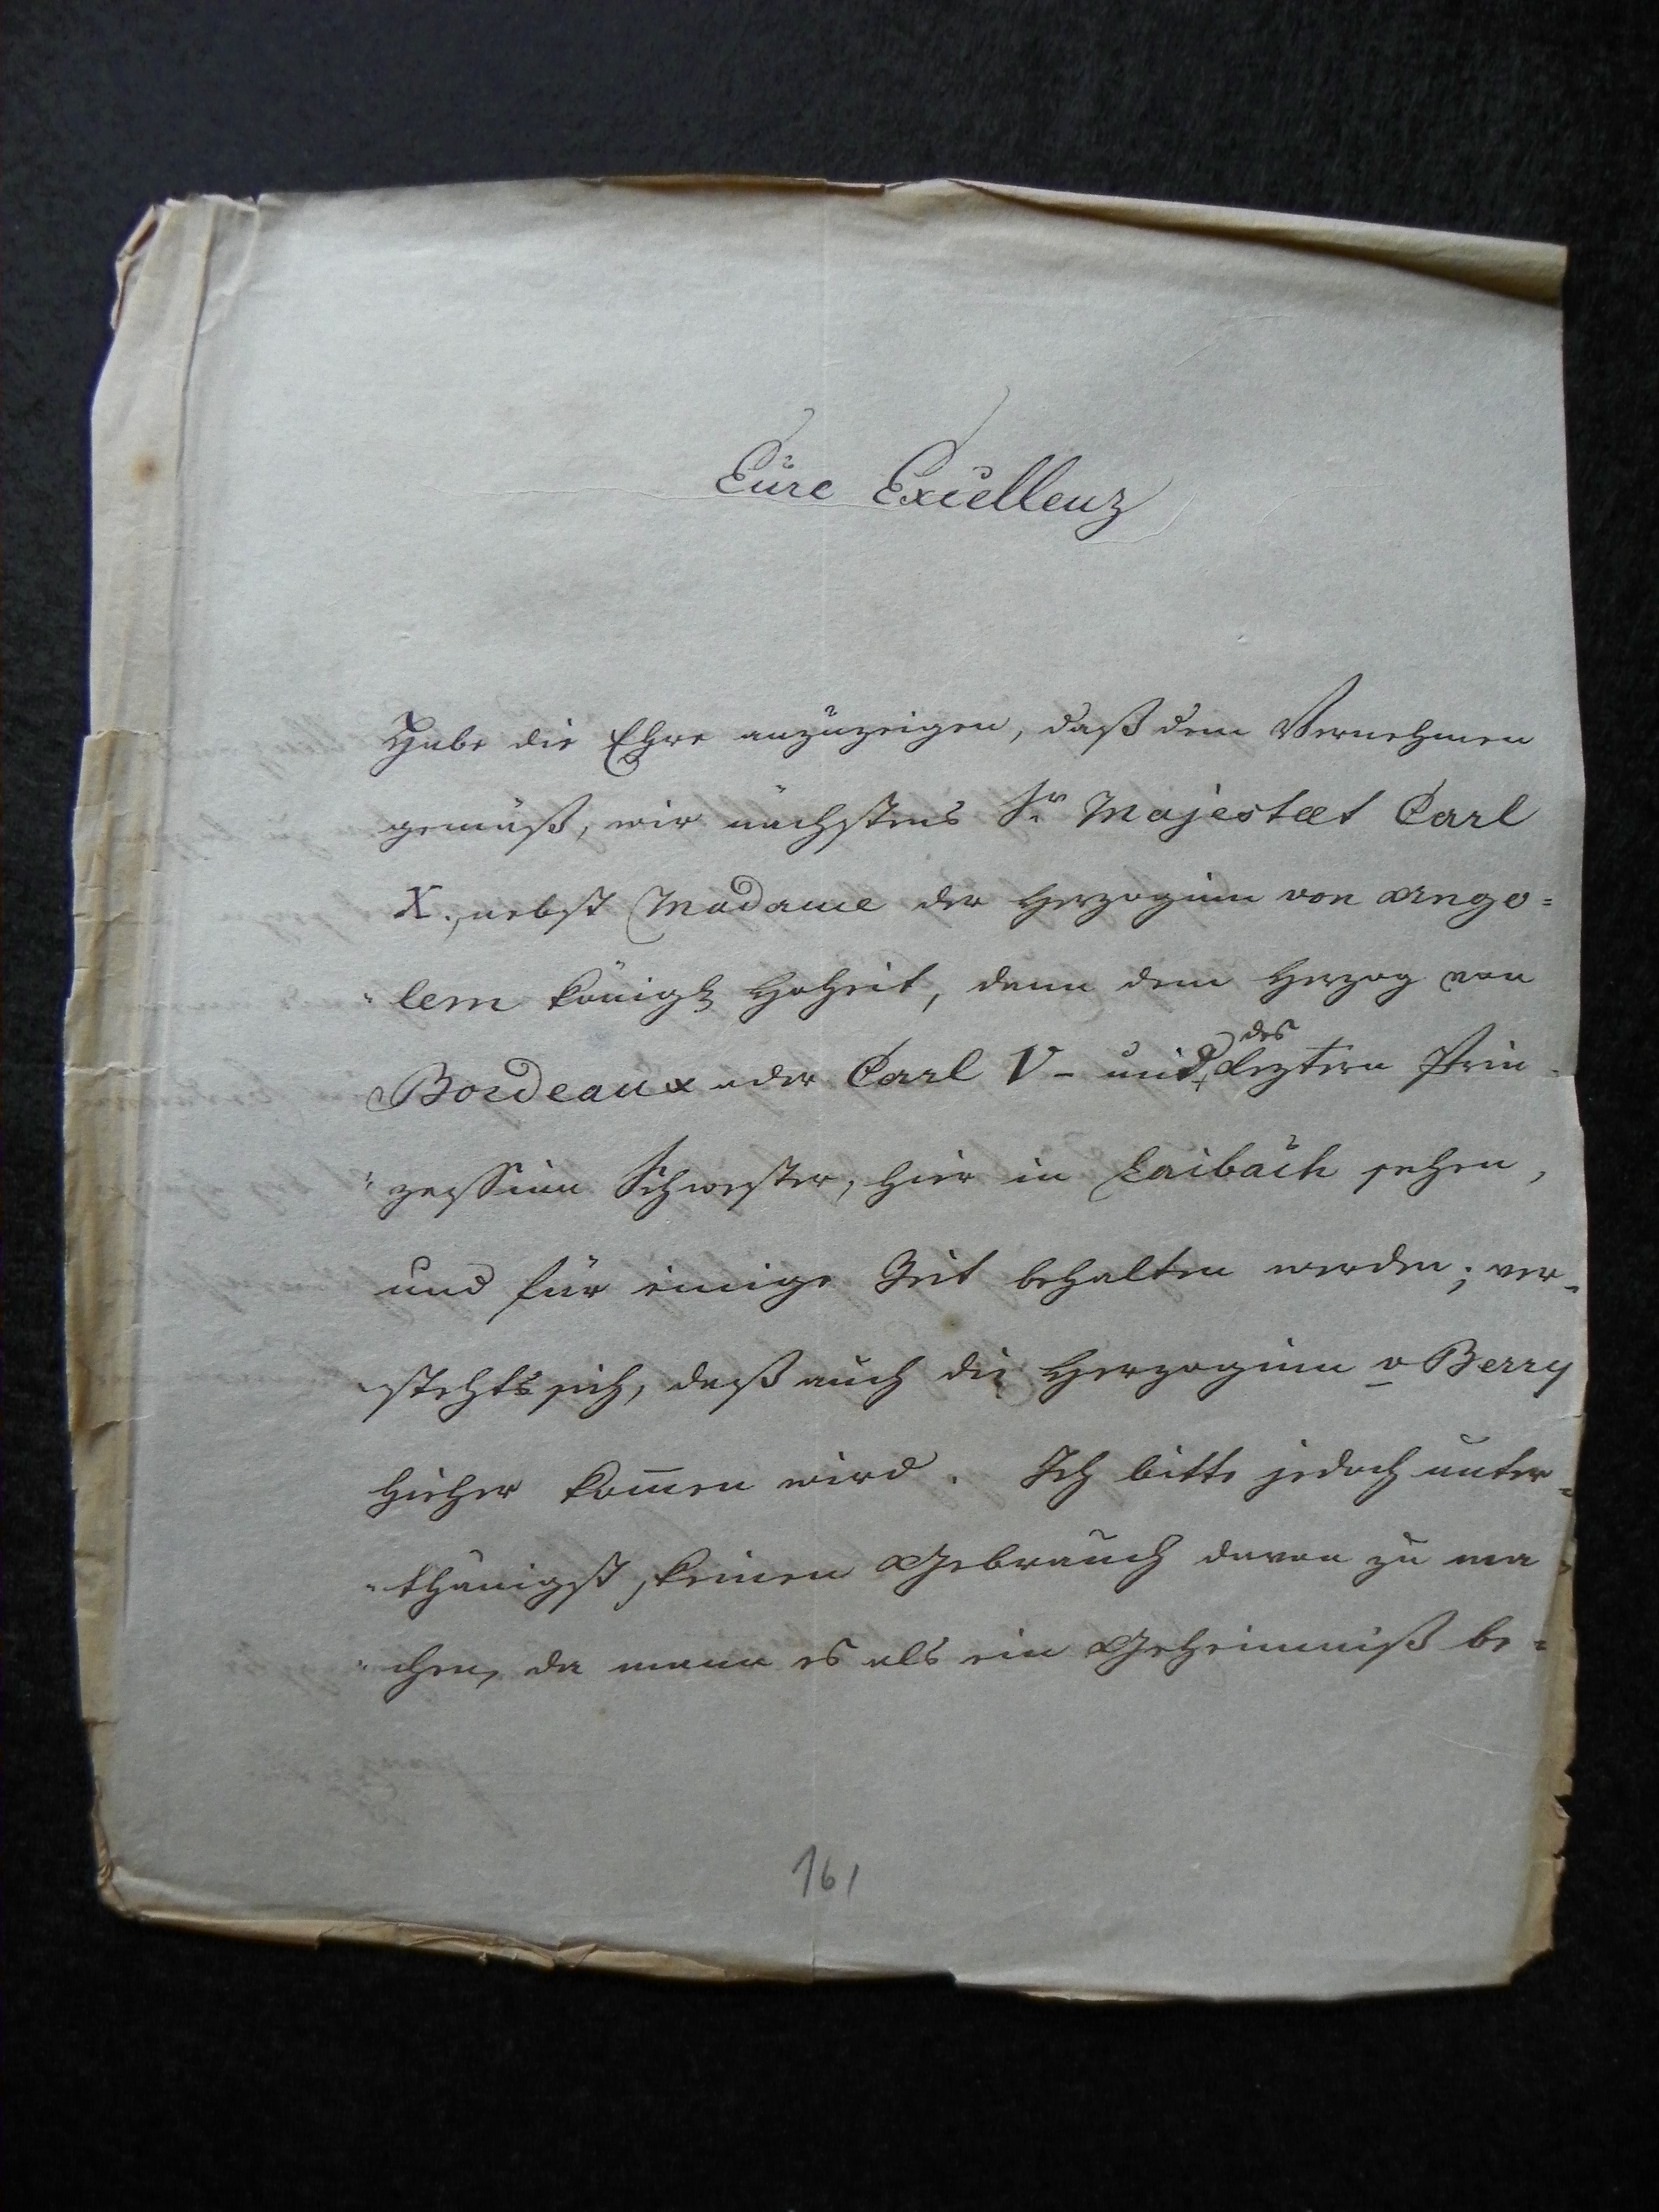 Eure Excellenz
Habe die Ehre anzuzeigen, daß dem Vernehmen
gemäß, wir nächstens Sr Majestæt Carl
X., nebst Madame der Herzoginn von Ango=
"lem königl Hoheit, dann dem Herzog von
Bordeaux oder Carl V - und des leztern Prin-
"zessinn Schwester, hier in Laibach sehen,
und für einige Zeit behalten werden; ver-
stehts sich, daß auch die Herzoginn v Berry
hieher kom̅en wird. Ich bitte jedoch unter=
"thänigst, keinen Gebrauch davon zu ma
"chen, da mann es als ein Geheimniß be=
161